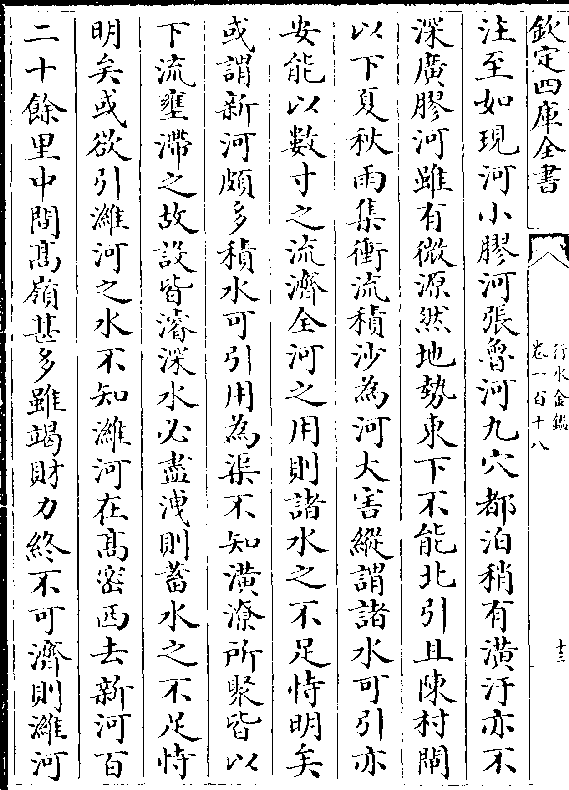 欽定四庫全書
行水金鑑
卷一百十八
十三
注至如現河小膠河張魯河九穴都泊稍有潢汙亦不
深廣膠河雖有微源然地勢東下不能北引且陳村閘
以下夏秋雨集衝流積沙為河大害縱謂諸水可引亦
安能以數寸之流濟全河之用則諸水之不足恃明矣
或謂新河頗多積水可引用為渠不知潢潦所聚皆以
下流壅滯之故設皆濬深水必盡洩則蓄水之不足恃
明矣或欲引濰河之水不知濰河在髙密西去新河百
二十餘里中間髙嶺甚多雖竭財力終不可濟則濰河